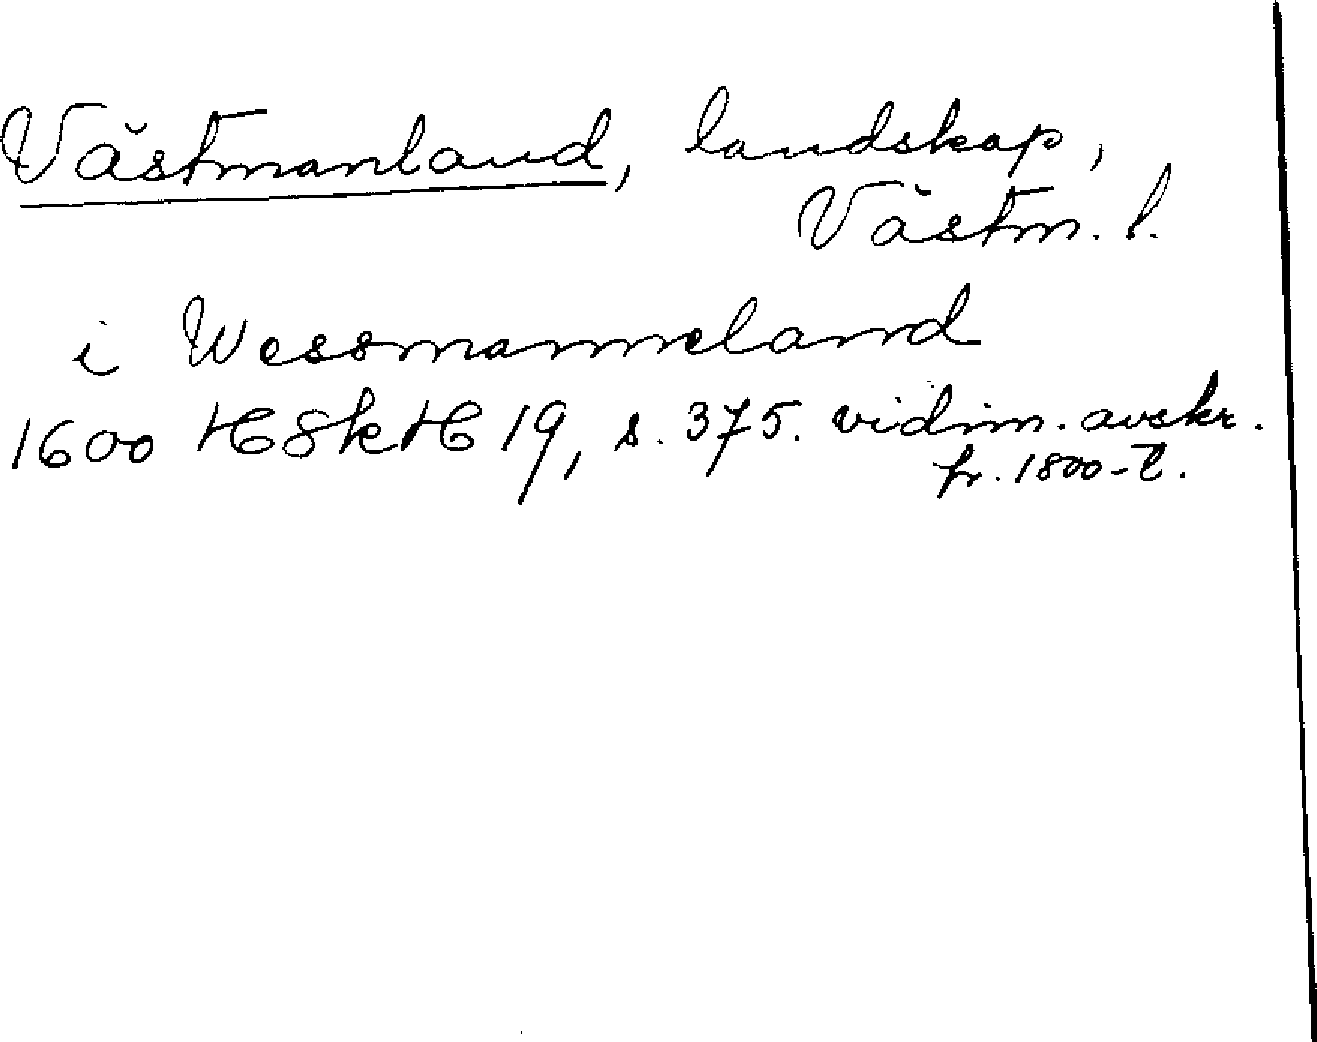 Västmanland, landskap,
Västm. l.
i Wessmanneland
1600 HSkH 19, s. 375. vidim. avskr.
fr. 1800-t.